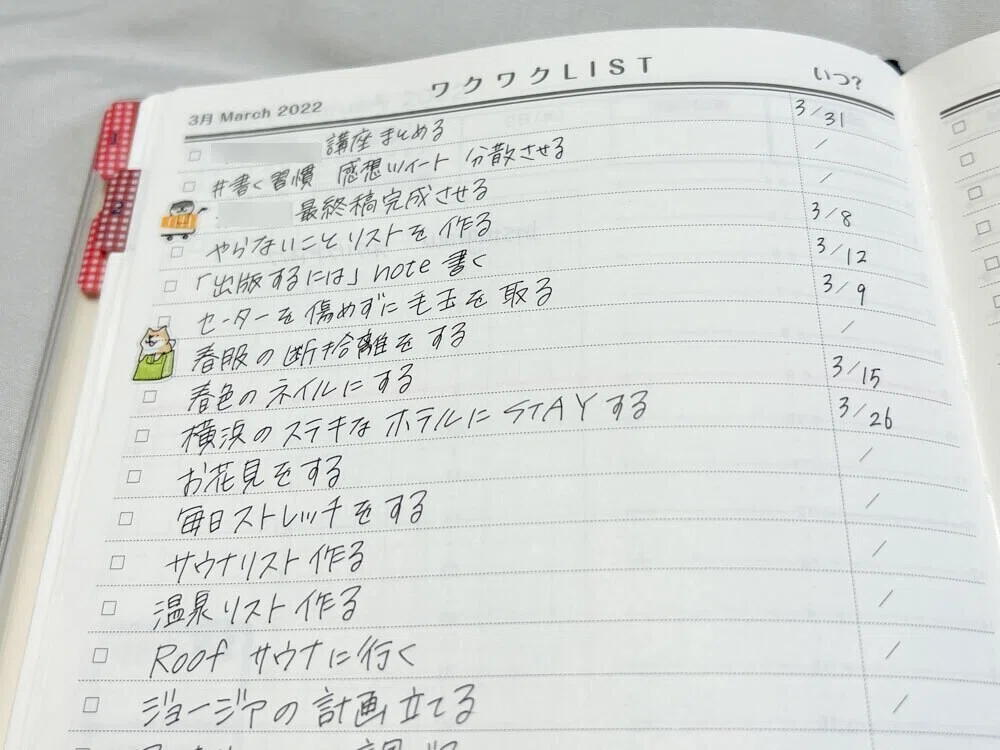 ワクワクLIST
3月 March 2022 いつ?
講座まとめる 3/31
#書く習慣 感想ツイート 分散させる /
最終稿完成させる /
やらないことリストを作る 3/8
「出版するには」note書く 3/12
セーターを傷めずに毛玉を取る 3/9
春服の断捨離をする /
春色のネイルにする 3/15
横浜のステキなホテルにSTAYする 3/26
お花見をする /
毎日ストレッチをする /
サウナリスト作る /
温泉リスト作る /
Roofサウナに行く /
ジョージアの計画立てる /